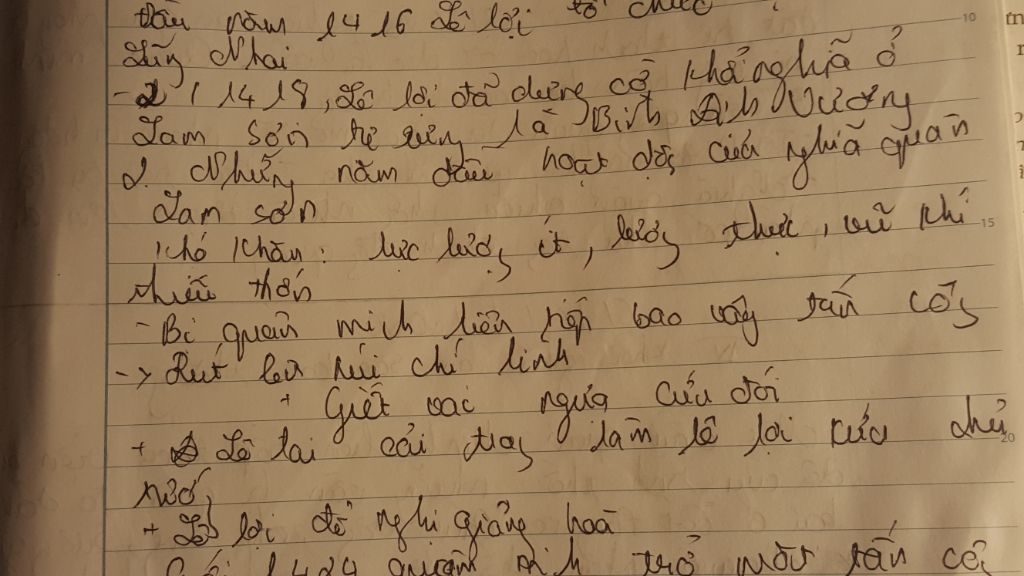 đầu năm 1416 Lê lợi tổ chức
Lũng Nhai
- 2 / 1418, Lê lợi đã dựng cờ khởi nghĩa ở
Lam sơn tự xưng là Bình Định Vương
2. Những năm đầu hoạt động của nghĩa quân
Lam sơn
Khó khăn: lực lượng ít, lương thực, vũ khí
thiếu thốn
- Bị quân minh liên tiếp bao vây tấn công
-> Rút lên núi chí linh
+ Giết voi ngựa cứu đói
+ Lê lai cải trang làm lê lợi cứu chủ
tướng
+ Lê lợi đề nghị giảng hoà
Cuối 1424 quân minh trở mặt tấn công